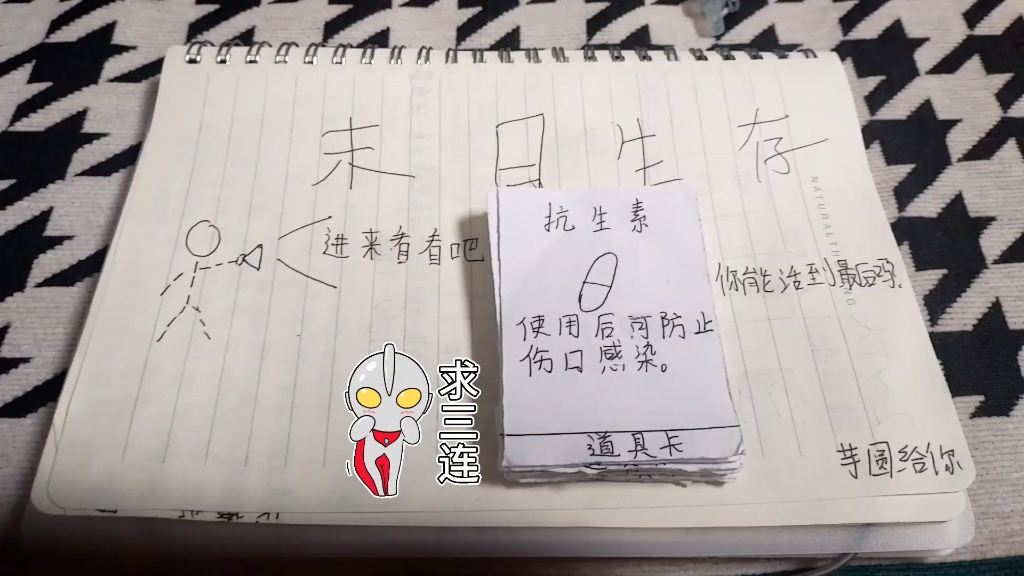 末日生存
进来看看吧
抗生素
使用后可防止
伤口感染。
道具卡
你能活到最后吗.
求三连
芋圆给你